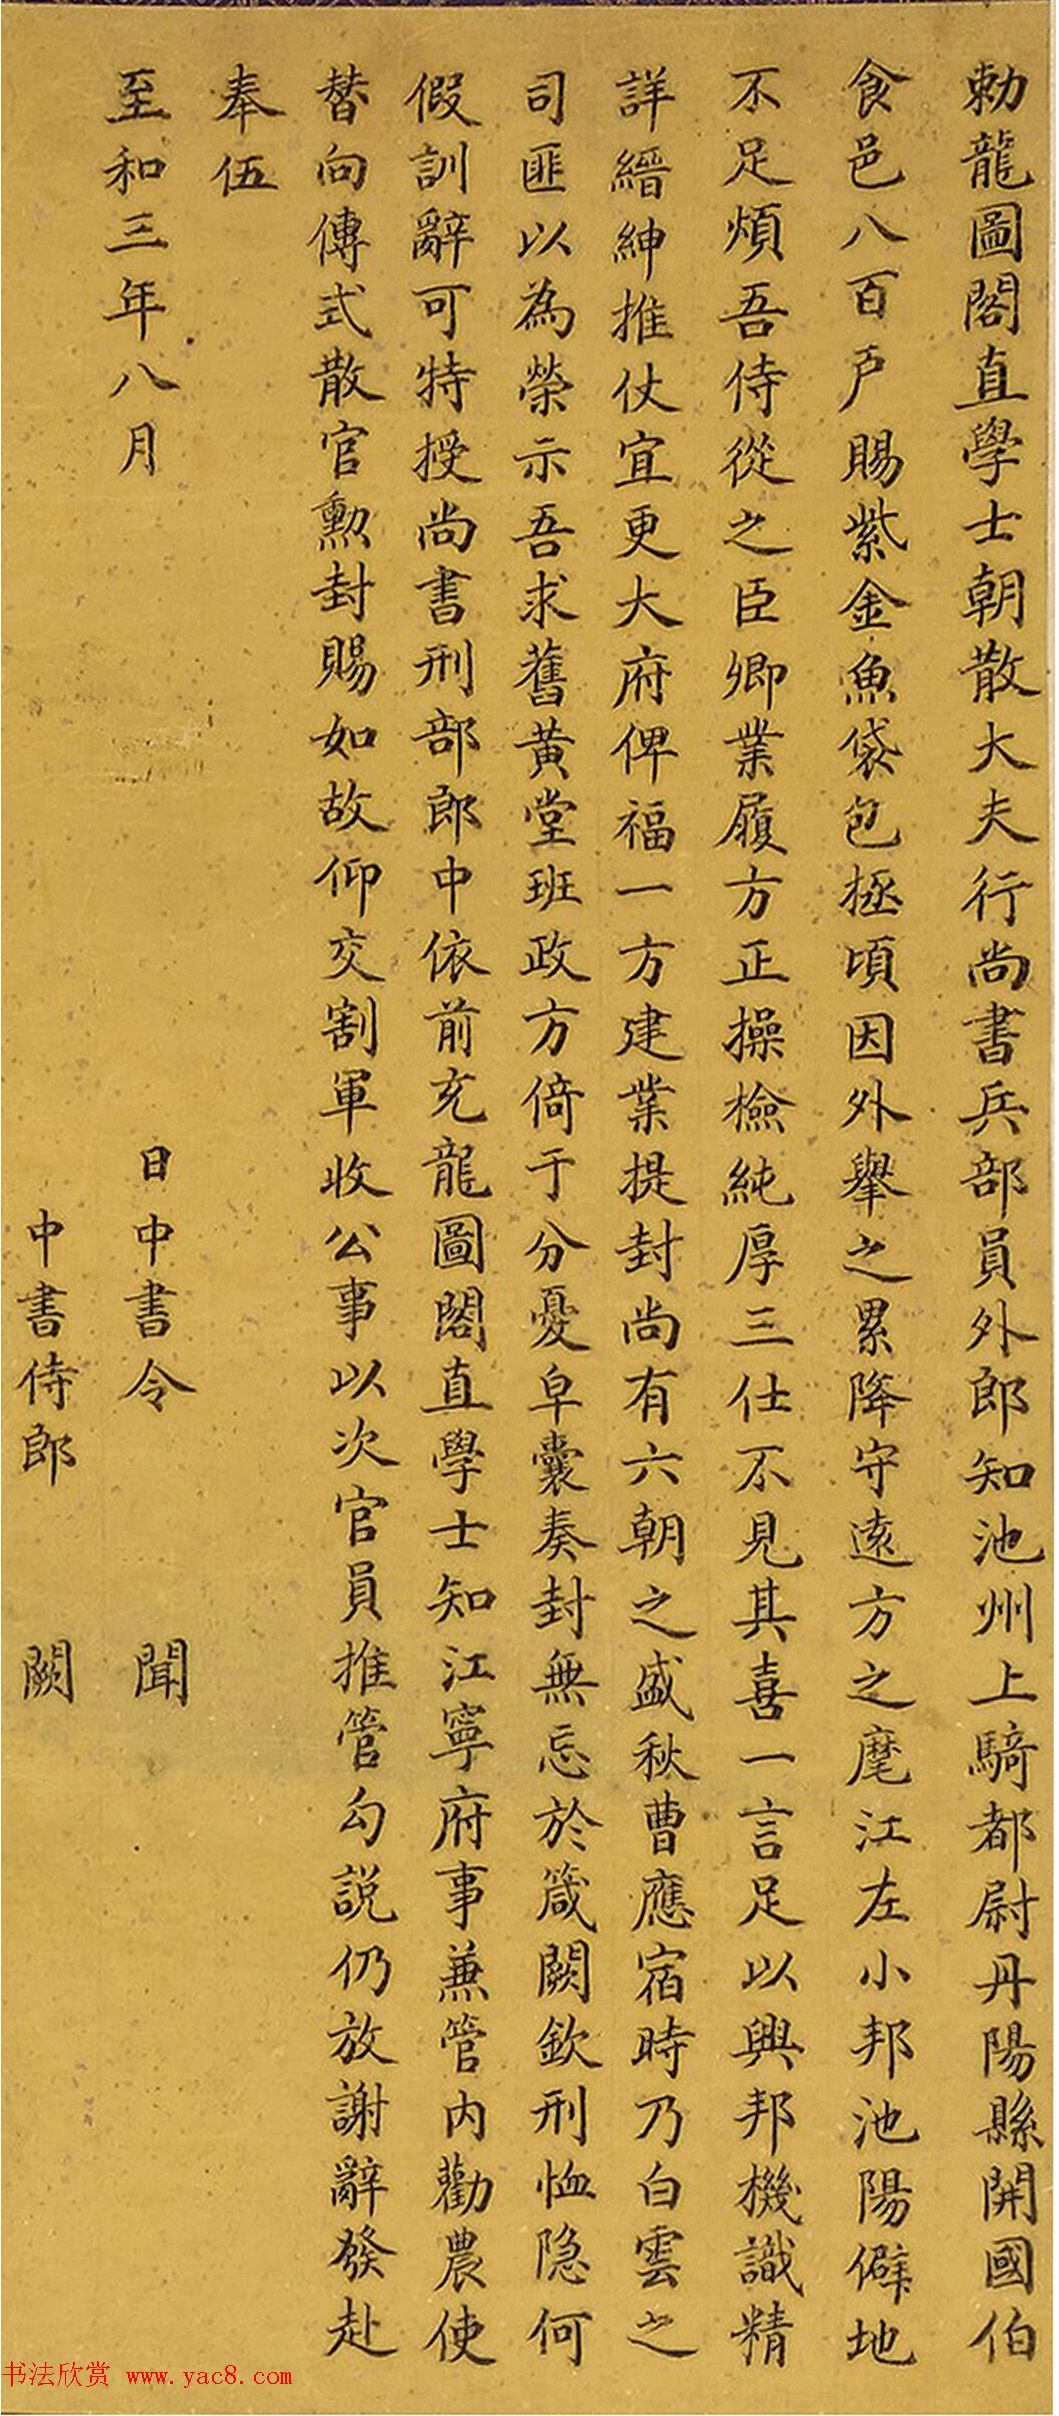 勑龍圖閣直學士朝散大夫行尚書兵部員外郎知池州上騎都尉丹陽縣開國伯
食邑八百戶賜紫金魚袋包拯頃因外舉之累降守遠方之麾江左小邦池陽僻地
不足煩吾侍從之臣卿業履方正操檢純厚三仕不見其喜一言足以興邦機識精
詳縉紳推仗宜更大府俾福一方建業提封尚有六朝之盛秋曹應宿時乃白雲之
司匪以為榮示吾求舊黃堂班政方倚于分憂皁囊奏封無忘於箴闕欽刑恤隐何
假訓辭可特授尚書刑部郎中依前充龍圖閣直學士知江寧府事兼管內勸農使
替向傳式散官勳封賜如故仰交割軍收公事以次官員推管勾説仍放謝辭發赴
奉伍
至和三年八月
日中書令 聞
中書侍郎 闕
书法欣赏 www.yac8.com